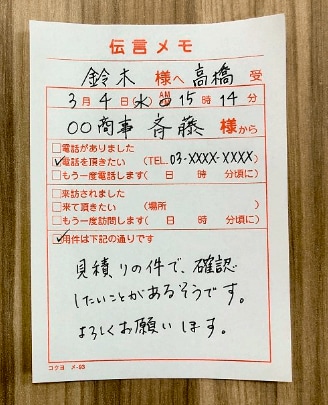 伝言メモ
鈴木 様へ 高橋 受
3月4日(水) AM 15時14分
〇〇商事 斉藤 様から
□電話がありました
☑電話を頂きたい (TEL. 03-XXXX-XXXX)
□もう一度電話します( 日 時 分頃に)
□来訪されました
□来て頂きたい (場所 )
□もう一度訪問します( 日 時 分頃に)
☑用件は下記の通りです
見積りの件で、確認
したいことがあるそうです。
よろしくお願いします。
コクヨ メ-93